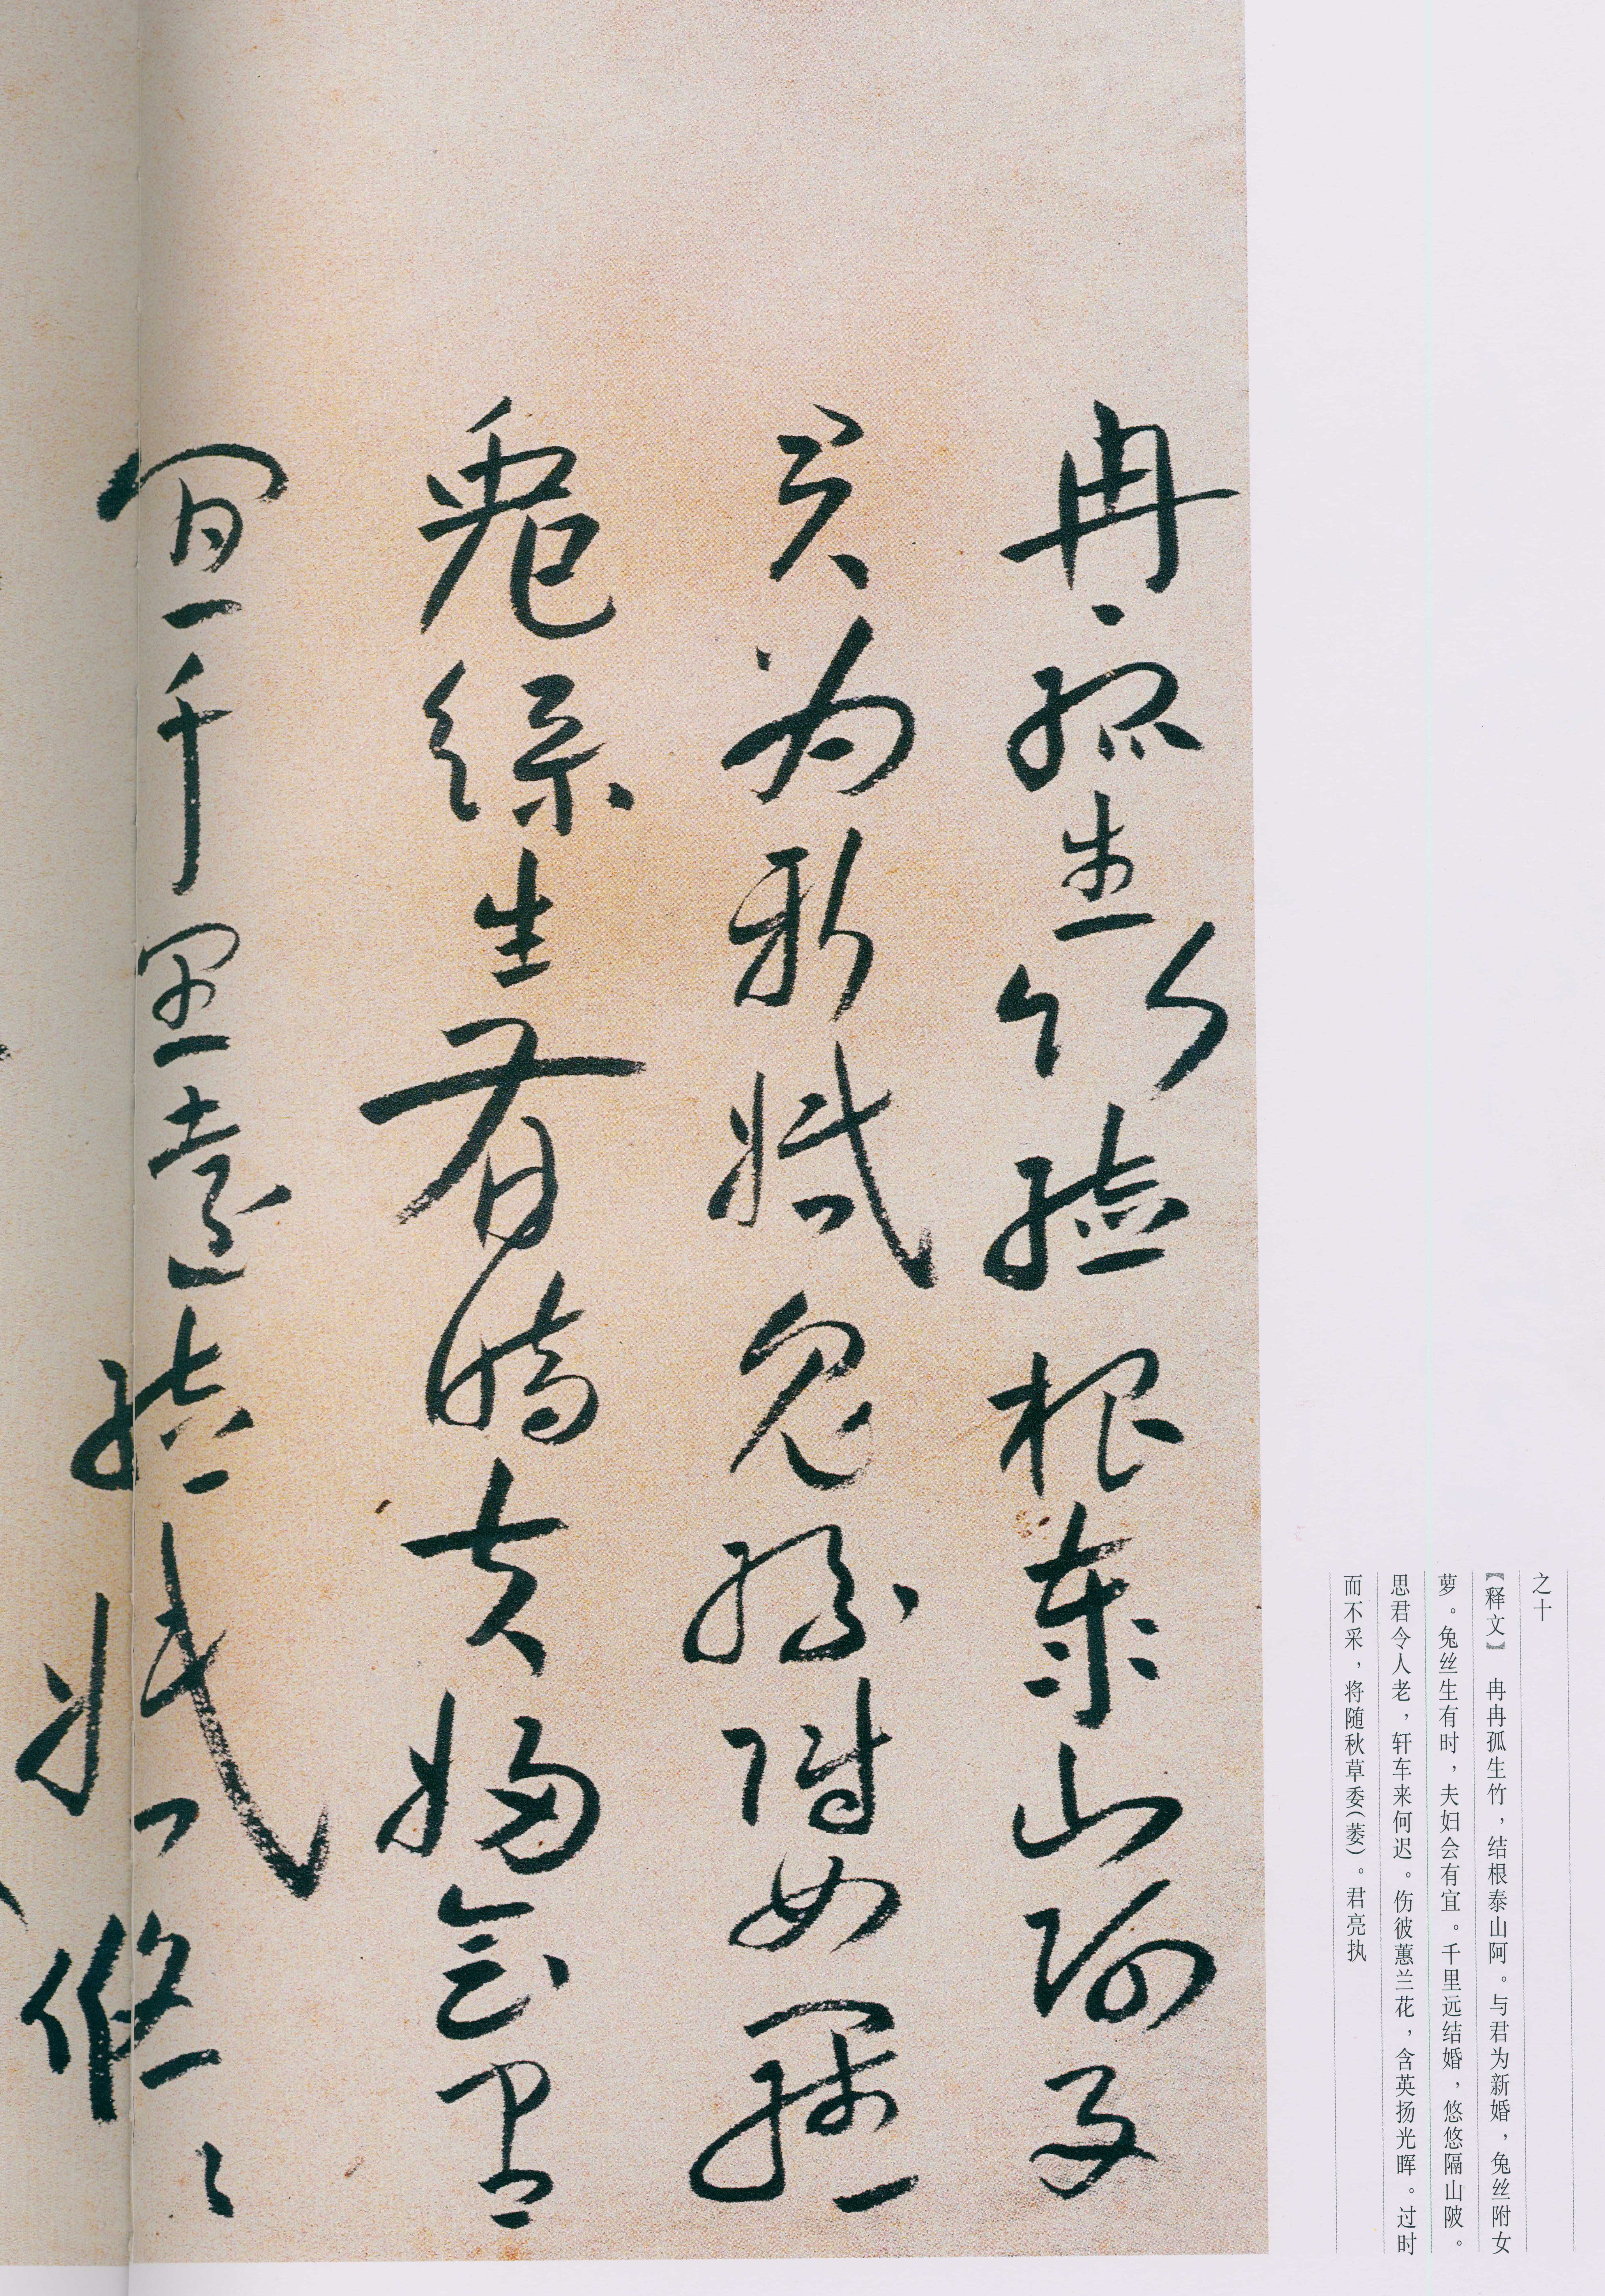 之十
【释文】 冉冉孤生竹，结根泰山阿。与君为新婚，兔丝附女
萝。兔丝生有时，夫妇会有宜。千里远结婚，悠悠隔山陂。
思君令人老，轩车来何迟。伤彼蕙兰花，含英扬光晖。过时
而不采，将随秋草委（萎）。君亮执
冉〻孤生竹結根泰山阿与
君為新婚兔絲附女羅
兔絲生有時夫婦會
宜千里遠結婚悠〻